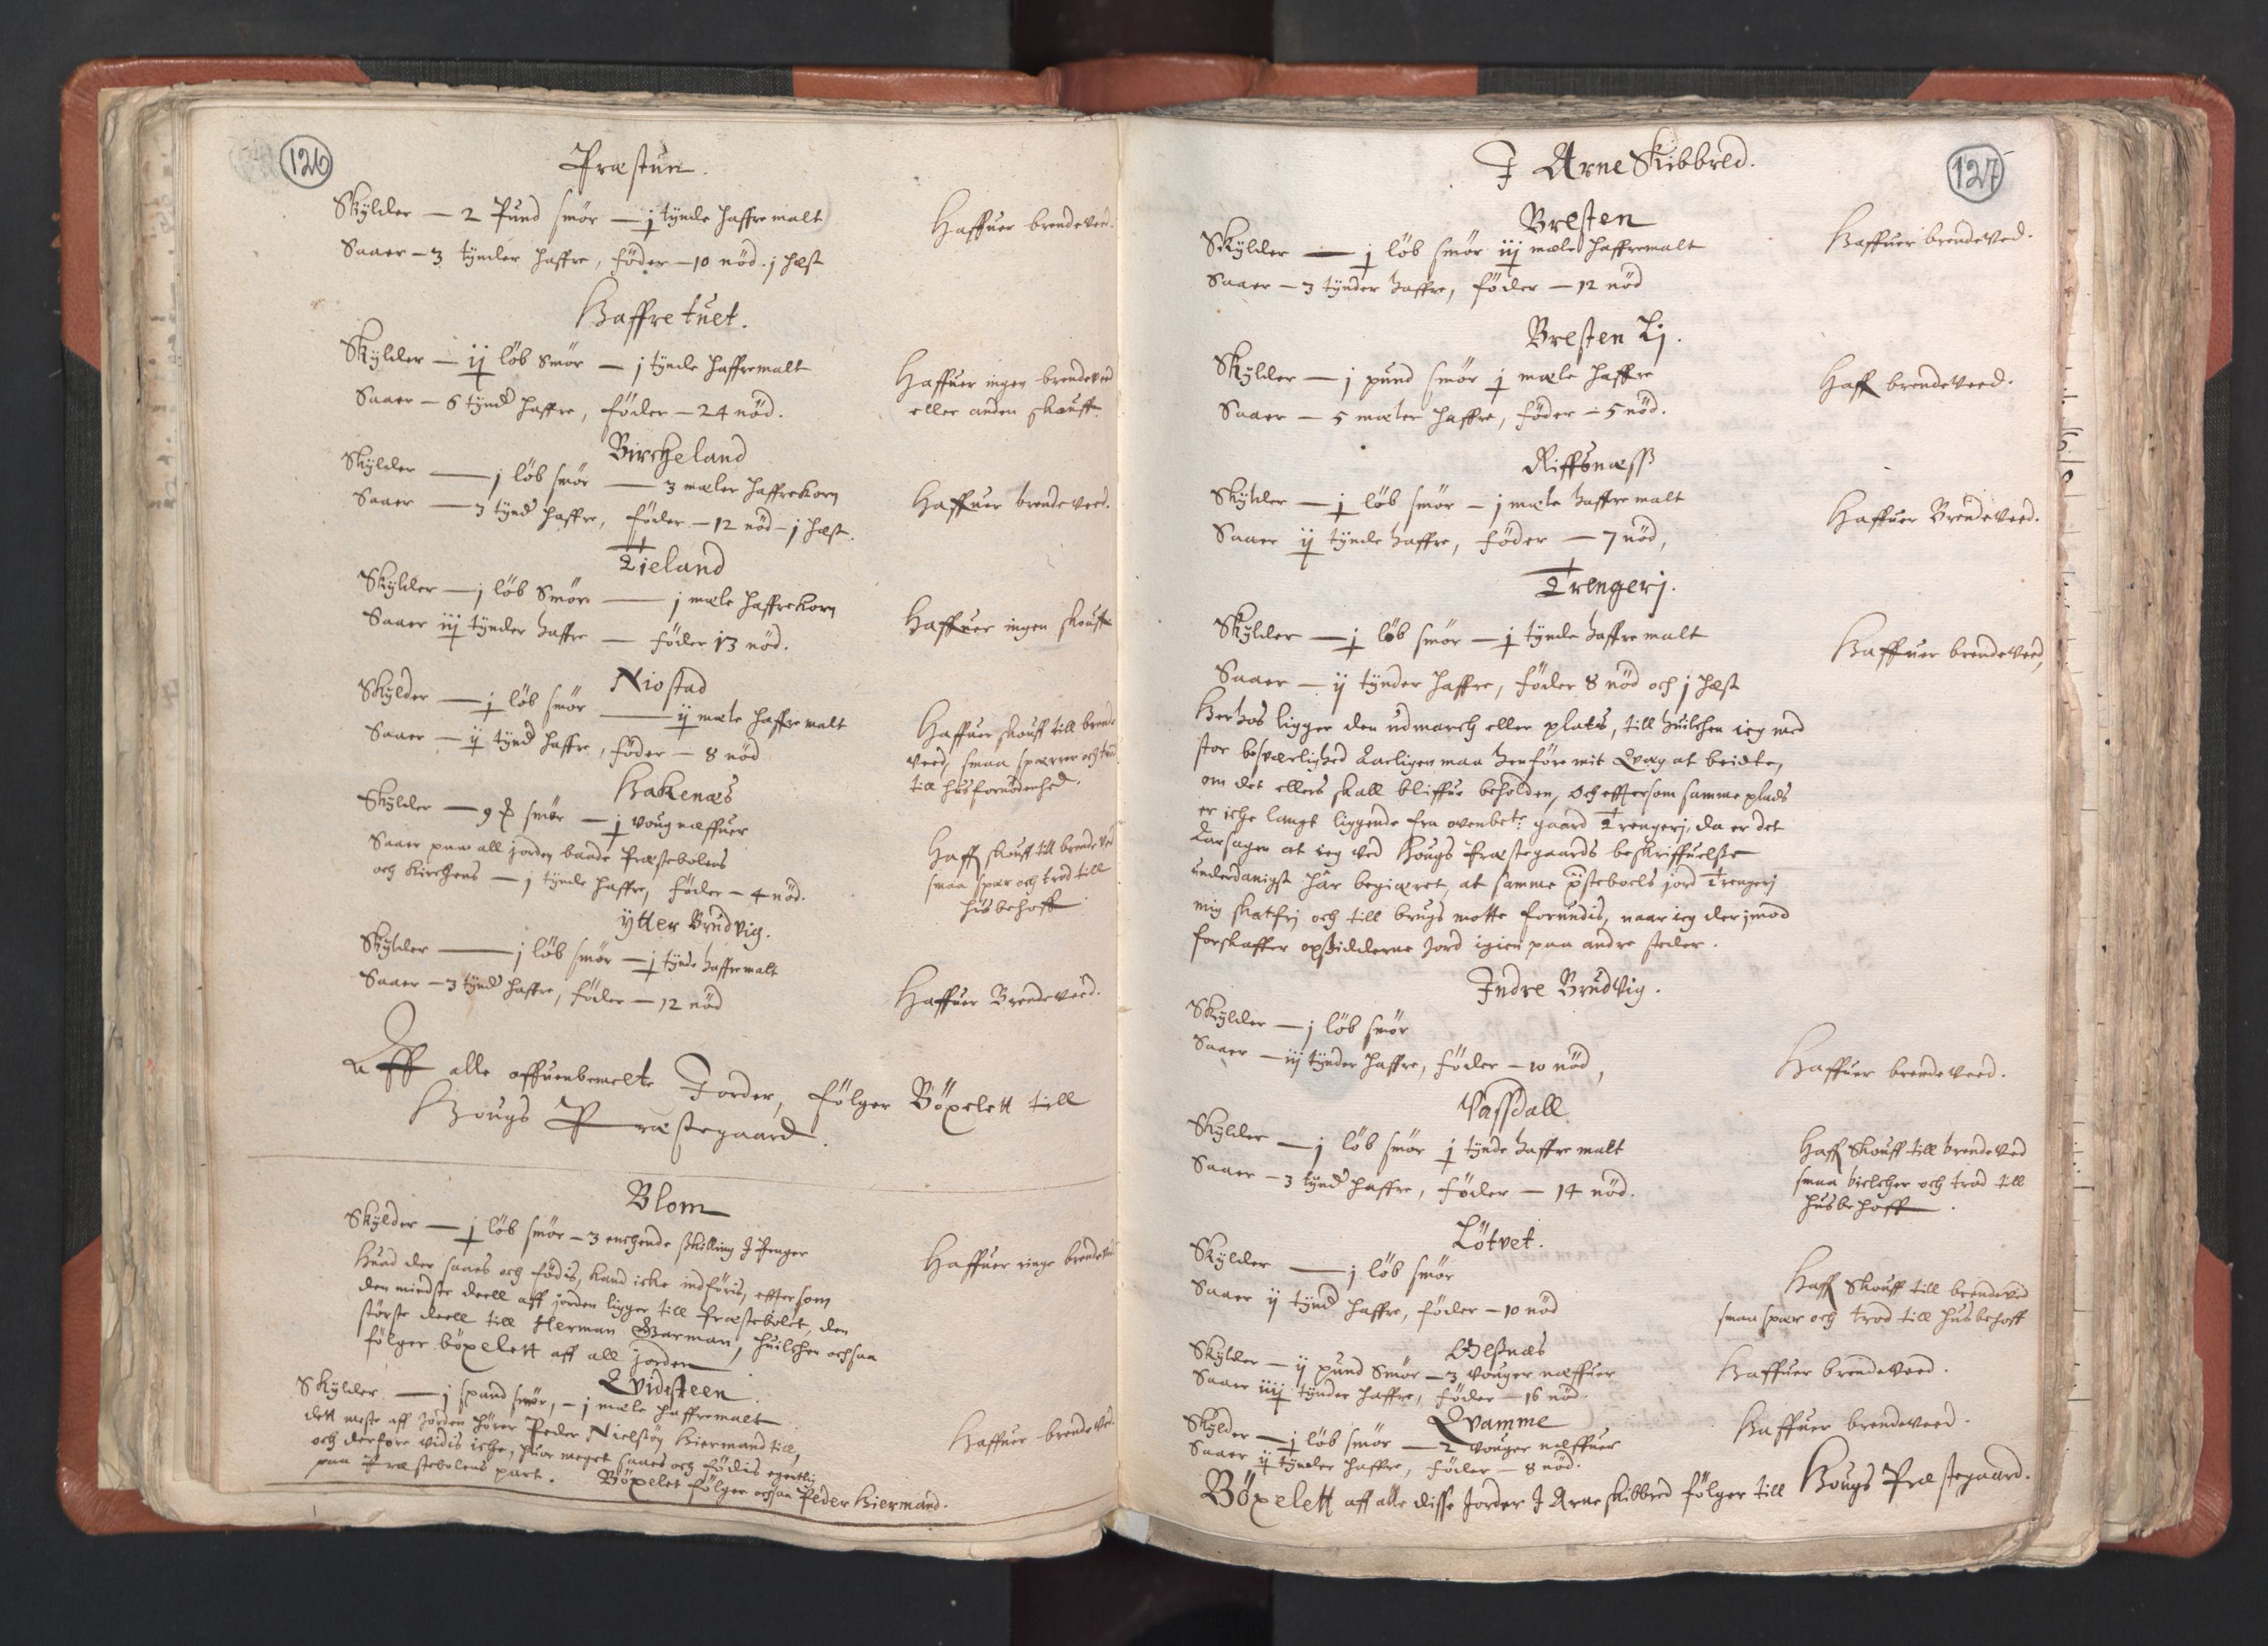 126
Præstun.
Skÿlder — 2 Pund smör — j tÿnde haffre malt
Saaer — 3 tÿnder haffre, föder — 10 nöd. j hæst
Haffuer brendeved.
Haffretuet.
Skÿlder — ij löb Smör — j tÿnde haffremalt
Saaer — 6 tÿnd haffre, föder — 24 nöd.
Haffuer ingen brendeved
eller anden skouff.
Bircheland
Skÿlder — j löb smör — 3 mæler haffrekorn
Saaer — 3 tÿnd haffre, föder — 12 nöd — j hæst.
Haffuer brendeved.
Tieland
Skÿlder — j löb Smör — j mæle haffrekorn
Saaer iij tÿnder haffre — föder 13 nöd.
Haffuer ingen skouff
Niostad
Skÿlder — j löb smör — ij mæle haffre malt
Saaer — ij tÿnd haffre, föder — 8 nöd
Haffuer skouff till brende
ved, smaa sparrer och trod
till husfornödenhed.
Hakenæs
Skÿlder — 9 ℔ smör — j voug næffuer
Saaer paa all jorden baade Præstebolens
och Kirchens — j tÿnde haffre, föder — 4 nöd.
Haff skouff till brendeved
smaa spær och trod till
husbehoff
ÿtter Brudvig.
Skÿlder — j löb smör — j tÿnde haffremalt
Saaer — 3 tÿnd haffre, föder — 12 nöd
Haffuer Brendeved.
Aff alle offuenbemelte Jorder, fölger Böxelett till
Hougs Præstegaard.
Blom
Skÿlder — j löb smör — 3 enchende skilling J Penger
Huad der saaes och födis, kand icke indföris, efftersom
den mindste deell aff jorden ligger till Præstebolet, den
störste deell till Herman Garman, huilchen ochsaa
fölger böxelett aff all jorden
Haffuer ringe brendeved
Qvidsteen
Skÿlder — j spand smör, — j mæle haffremalt
dett meste aff Jorden hörer Peder Nielsön Hiermand till,
och derfore vidis iche, huor meget saaes och födis egentlig
paa Præstebolens part. Böxelet fölger ochsaa Peder Hiermand.
Haffuer brendeved.
127
J Arne Skibbred.
Bresten
Skÿlder — j löb smör iij mæle haffremalt
Saaer — 3 tÿnder haffre, föder — 12 nöd
Haffuer brendeved.
Bresten Lj.
Skÿlder — j pund smör j mæle haffre
Saaer — 5 mæler haffre, föder — 5 nöd.
Haff brendeveed.
Riffsnæss
Skÿlder — j löb smör — j mæle haffre malt
Saaer ij tÿnde haffre, föder — 7 nöd,
Haffuer Brendeveed.
Trengerj.
Skÿlder — j löb smör — j tÿnde haffre malt
Saaer — ij tÿnder haffre, föder 8 nöd och j hæst
Haffuer brendeved,
Herhos ligger den udmarch eller plats, till huilchen ieg med
stor besværlighed aarligen maa henföre mit Qvæg at beidte,
om det ellers skall bliffue beholden, Och efftersom samme plads
er iche langt liggende fra ovenbete: gaard Trengerj, da er det
aarsagen at ieg ved Hougs Præstegaards beskriffuelse
underdanigst har begiæret, at samme ÿsteboels jord Trengerj
mig skatfrj och till brugs motte forundis, naar ieg der jmod
forskaffer opsidderne Jord igien paa andre steder.
Indre Brudvig.
Skÿlder — j löb smör
Saaer — iij tÿnder haffre, föder — 10 nöd,
Haffuer brendeveed.
Vassdall
Skÿlder — j löb smör j tÿnde haffre malt
Saaer — 3 tÿnd haffre, föder — 14 nöd.
Haff Skouff till brendeved
smaa bielcher och trod till
husbehoff.
Lötvet.
Skÿlder — j löb smör
Saaer ij tÿnd haffre, föder — 10 nöd
Haff Skouff till brendeved
smaa spær och trod till husbehoff
Olsnæs
Skÿlder — ij pund Smör — 3 vouger næffuer
Saaer iiij tÿnder haffre, föder — 16 nöd.
Haffuer brendeveed.
Qvamme
Skÿlder — j löb smör — 2 vouger neffuer
Saaer ij tÿnder haffre, föder — 8 nöd.
Haffuer brendeveed.
Böxelett aff alle disse Jorder J Arne skibbred fölger till Hougs Præstegaard.